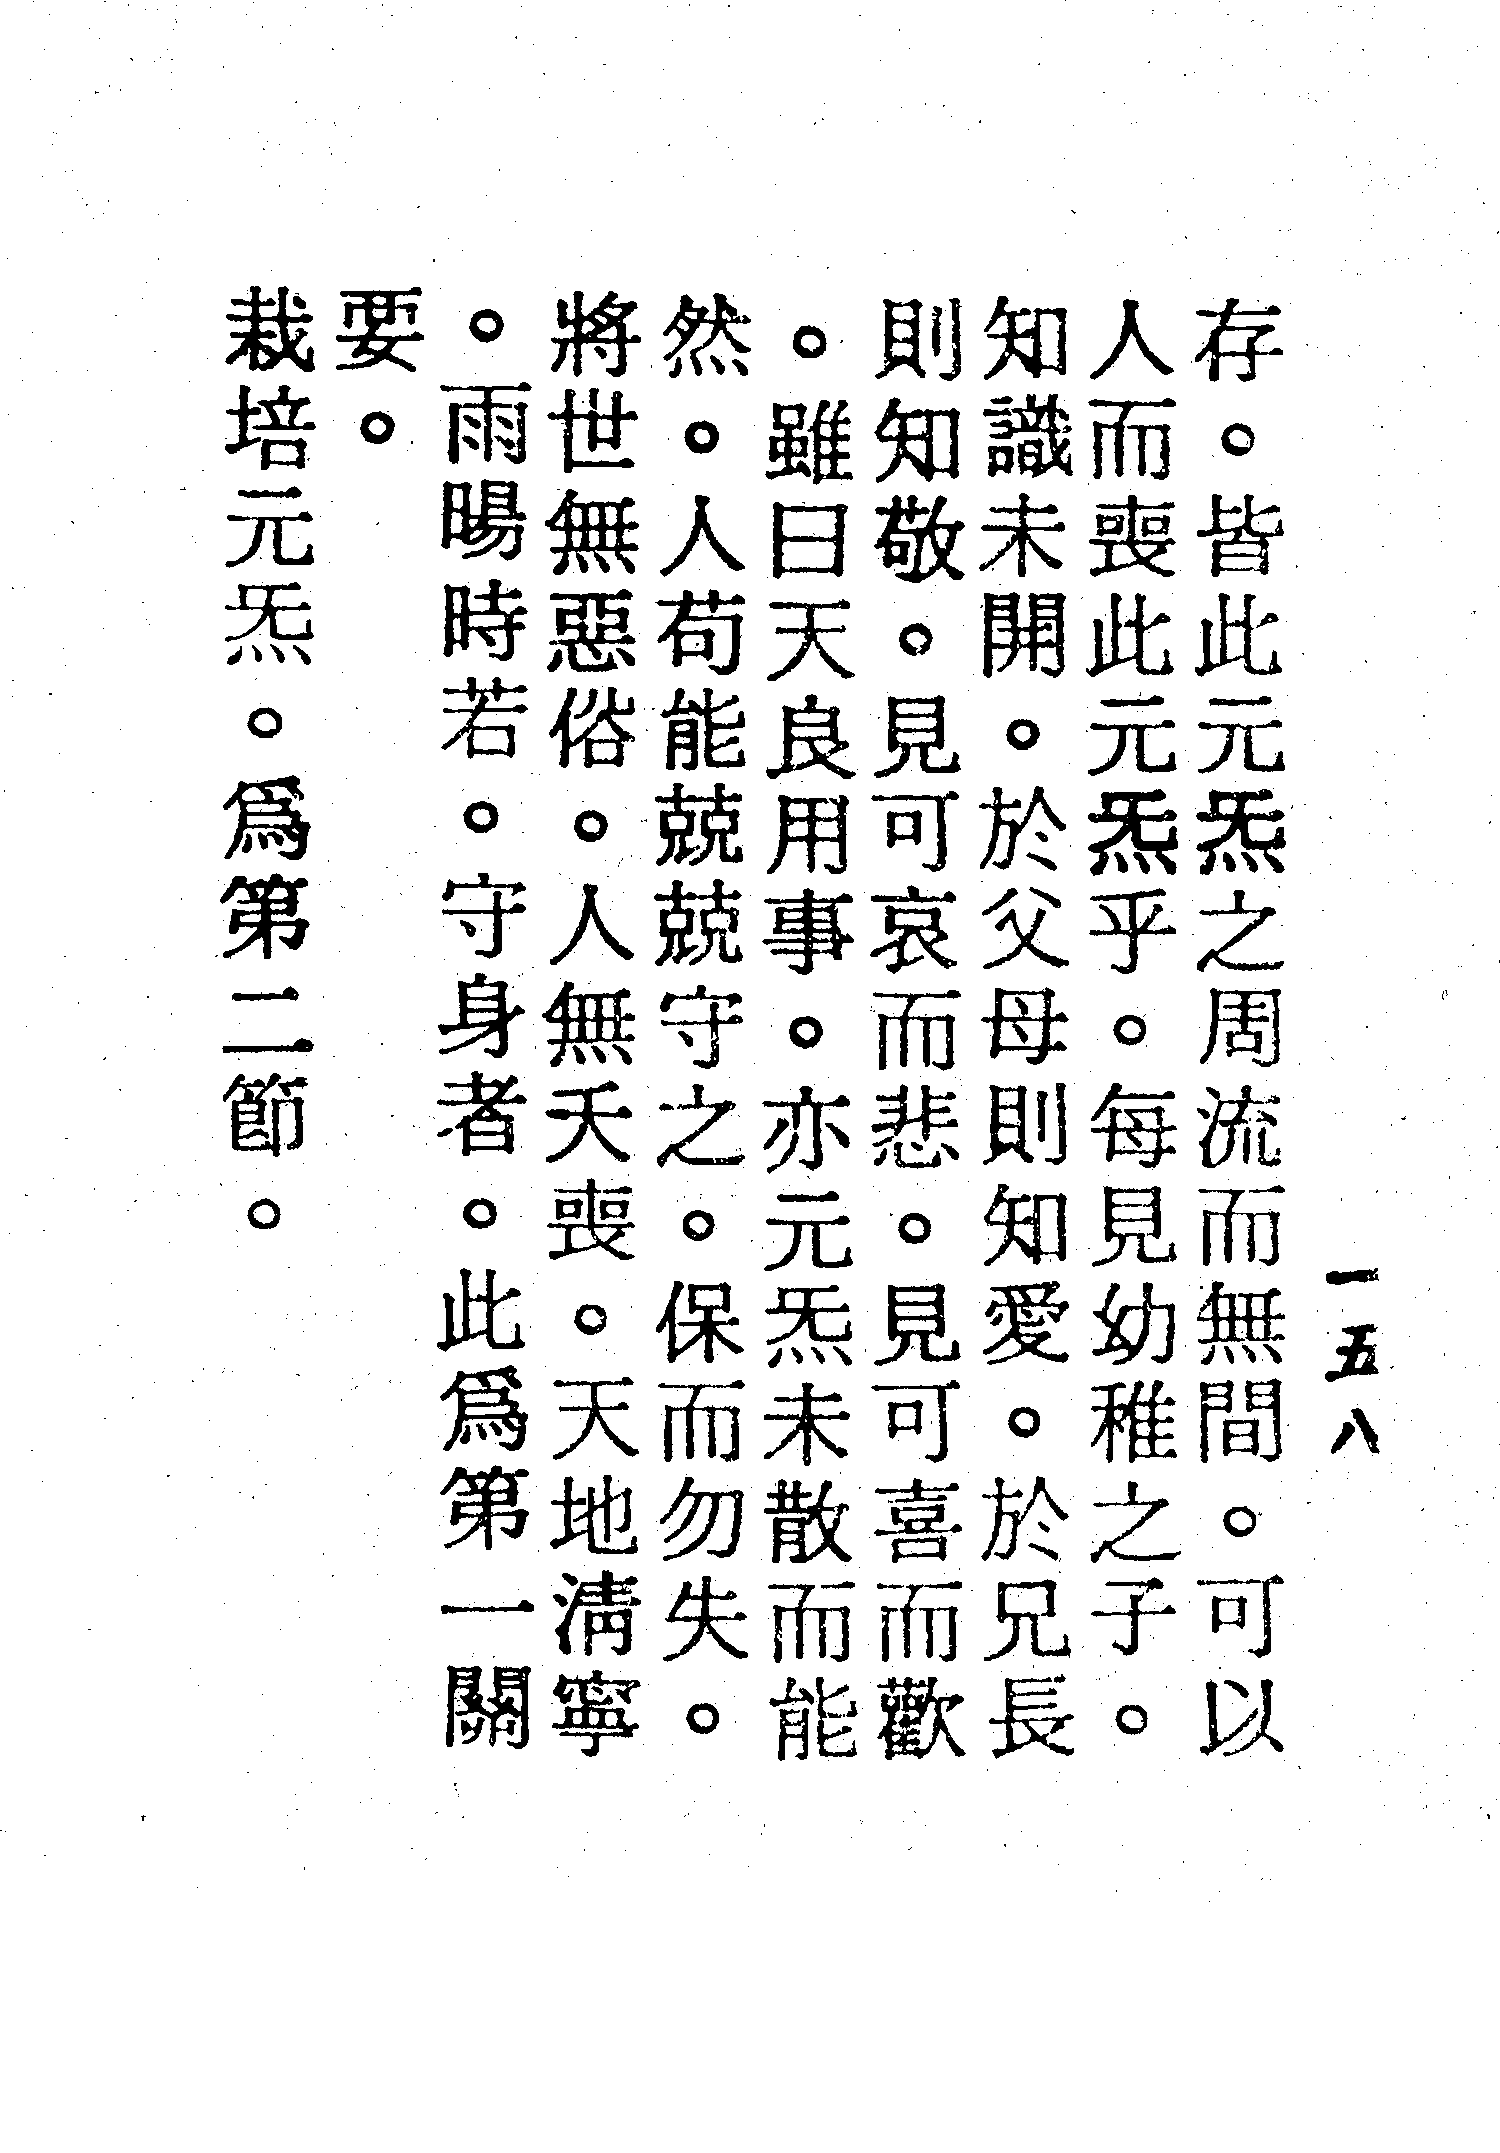 一五八
存。皆此元炁之周流而無間。可以
人而喪此元炁乎。每見幼稚之子。
知識未開。於父母則知愛。於兄長
則知敬。見可哀而悲。見可喜而歡
。雖曰天良用事。亦元炁未散而能
然。人苟能兢兢守之。保而勿失。
將世無惡俗。人無夭喪。天地清寧
。雨暘時若。守身者。此為第一關
要。
栽培元炁。為第二節。